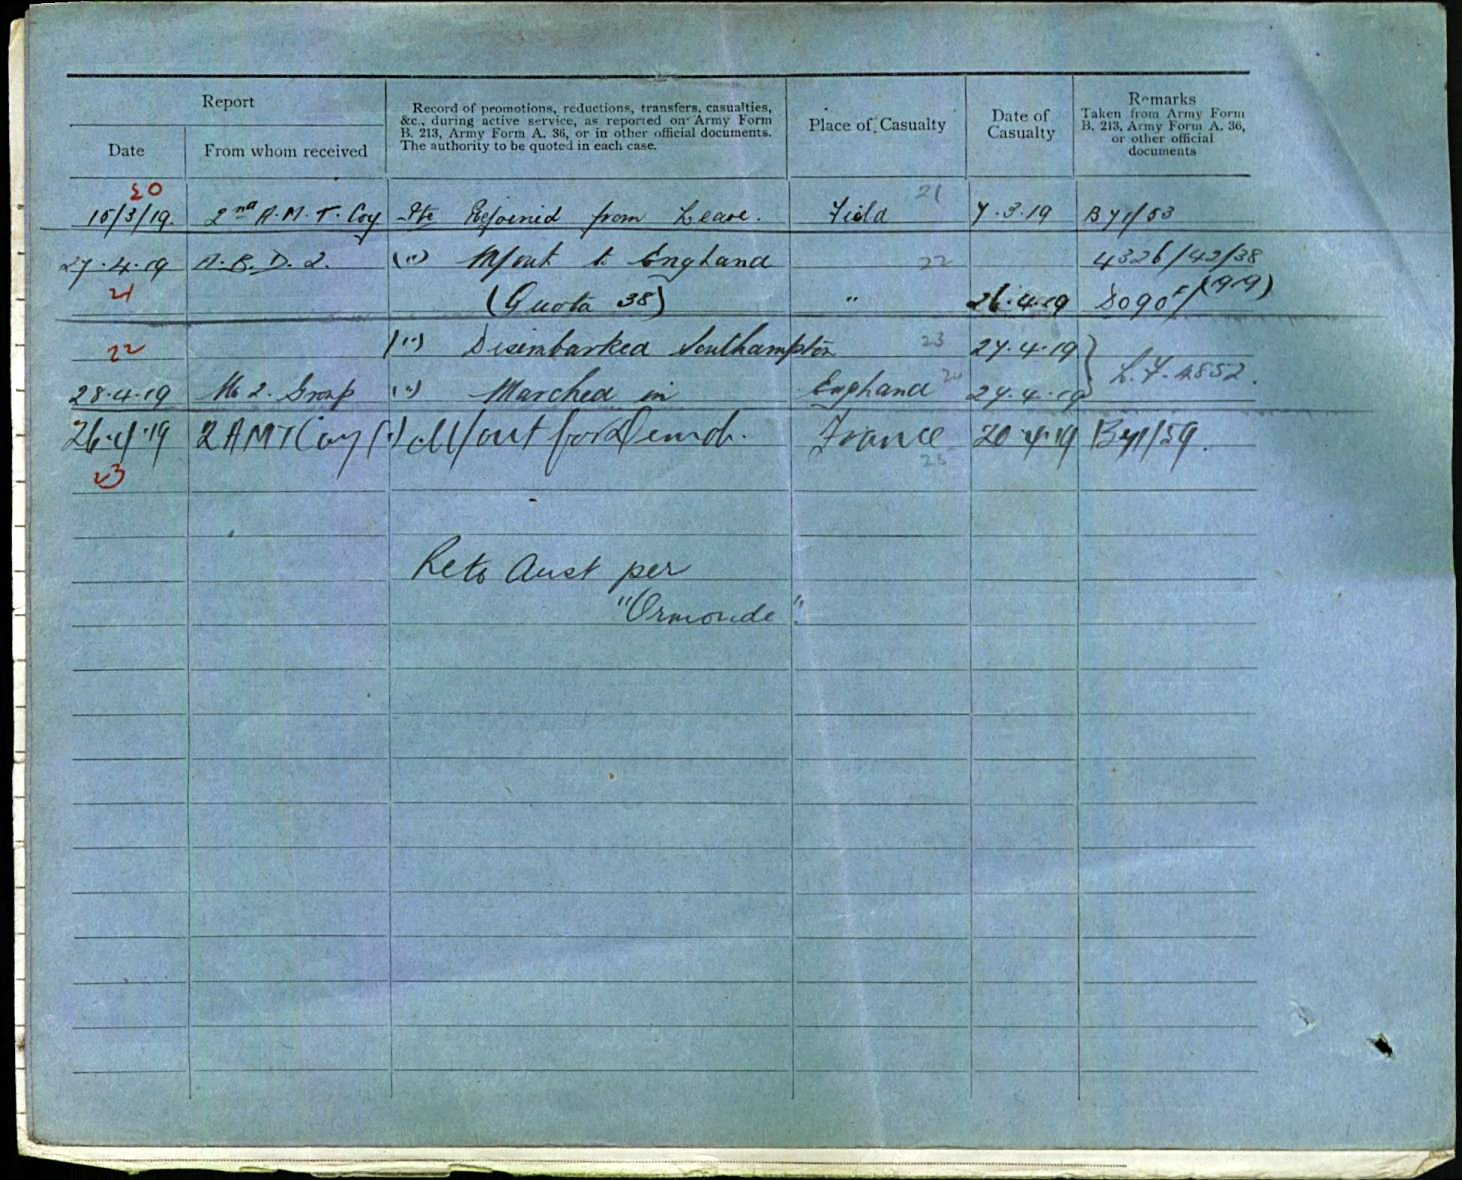 Report
Date
From whom received
Record of promotions, reductions, transfers, casualties,
&c., during active service, as reported on Army Form
B. 213, Army Form A. 36, or in other official documents.
The authority to be quoted in each case.
Place of Casualty
Date of
Casualty
Remarks
Taken from Army Form
B. 213, Army Form A. 36,
or other official
documents
20
15/3/19. 2nd A.M.T. Coy Pte Rejoined from Leave. Field 21 7.3.19 B 41/53
27.4.19 A.B.D. 2. (") M/out to England 22 4326/42/38
21 (Quota 38) " 26.4.19 (1919)
22 (") Disembarked Southampton 23 27.4.19
28.4.19 No 2. Group (") Marched in England 24 27.4.19 4852.
26.4.19 2 AMT Coy (") M/out for Demob. France 20.4.19 B41/59.
23 25
Ret to Aust per
"Ormonde".